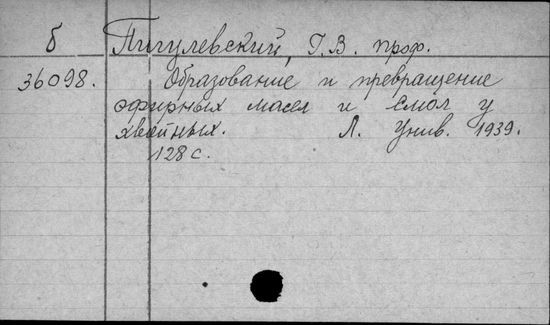 б Пигулевский, Г. В. проф.
36098. Образование и превращение
эфирных масел и смол у
хвойных. Л. Унив. 1939.
128 с.